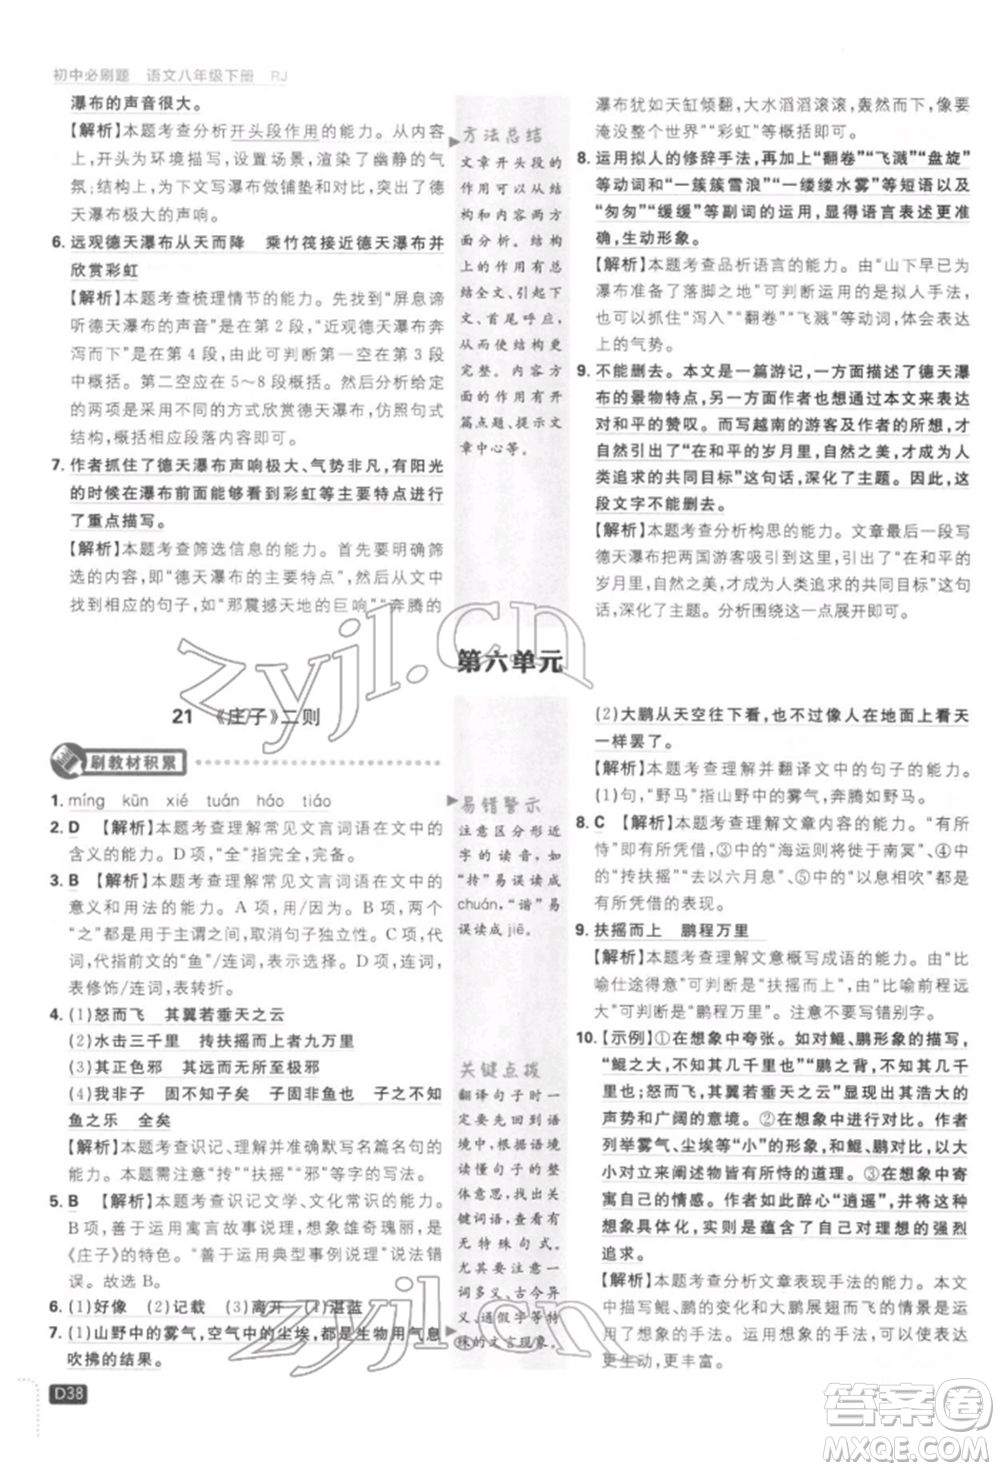 初中必刷题 语文八年级下册 RJ
瀑布的声音很大。
【解析】本题考查分析开头段作用的能力。从内容
上,开头为环境描写,设置场景,渲染了幽静的气
氛;结构上,为下文写瀑布做铺垫和对比,突出了德
天瀑布极大的声响。
6. 远观德天瀑布从天而降 乘竹筏接近德天瀑布并
欣赏彩虹
【解析】本题考查梳理情节的能力。先找到“屏息谛
听德天瀑布的声音”是在第 2 段,“近观德天瀑布奔
泻而下”是在第 4 段,由此可判断第一空在第 3 段
中概括。第二空应在 5～8 段概括。然后分析给定
的两项是采用不同的方式欣赏德天瀑布,仿照句式
结构,概括出相应段落内容即可。
7. 作者抓住了德天瀑布声响极大、气势非凡,有阳光
的时候在瀑布前面能够看到彩虹等主要特点进行
了重点描写。
【解析】本题考查筛选信息的能力。首先要明确筛
选的范围,即“德天瀑布的主要特点”,然后从文中
找到相应的句子,如“那震撼天地的巨响”“奔腾的
方法总结
文章开头段的
作用可以从结
构和内容两方
面分析。结构
上的作用有总
结全文、引起下
文、首尾呼应,
从而使结构更
完整。内容方
面的作用有开
篇点题、提示文
章中心等。
瀑布犹如天缸倾翻,大水滔滔滚滚,轰然而下,像要
淹没整个世界”“彩虹”等,据此分点概括即可。
8. 运用拟人的修辞手法,再加上“翻卷”“飞溅”“盘旋”
等动词和“一簇簇雪浪”“一缕缕水雾”等短语以及
“匆匆”“缓缓”等副词的运用,显得语言表述更准
确,生动形象。
【解析】本题考查品析语言的能力。由“山下早已为
瀑布准备了落脚之地”可判断应运用的拟人手法,
也可以抓住“泻入”“翻卷”“飞溅”等动词,体会表达
上的气势。
9. 不能删去。本文是一篇游记,一方面描述了德天瀑
布的景物特点,另一方面作者也想通过本文来表达
对和平的赞叹。而写越南的游客及作者的所想,才
自然引出了“在和平的岁月里,自然之美,才能成为
人类追求的共同目标”这句话,深化了主题。因此,这
段文字不能删去。
【解析】本题考查分析构思的能力。文章最后用写
德天瀑布把两国游客吸引到这里,引出了“在和平的
岁月里,自然之美,才能成为人类追求的共同目标”这句
话,深化了主题。分析围绕这一点展开即可。
第六单元
21 《庄子》二则
刷教材积累
1. míng kūn xié tuán háo tiáo
2. D 【解析】本题考查理解常见文言词语在文中的
含义的能力。D 项,“全”指完全,完备。
3. B 【解析】本题考查理解常见文言词语在文中的
意义和用法的能力。A 项,用/因为。B 项,两
个“之”都用于主谓之间,取消句子独立性。C 项,代
词,代指上文的“鱼”/连词,表转折。D 项,连词,
表修饰/连词,表转折。
4. (1)怒而飞 其翼若垂天之云
(2)水击三千里 抟扶摇而上者九万里
(3)其正色邪 其远而无所至极邪
(4)我非子 固不知子矣 子固非鱼也 子之不知
鱼之乐 全矣
【解析】本题考查识记、理解并准确默写名篇名句的
能力。本题需注意“抟”“扶摇”“邪”等字的书写。
5. B 【解析】本题考查识记文学、文化常识的能力。
B 项,善于运用寓言故事说理,想象雄奇瑰丽,是
《庄子》的特色。“善于运用典型事例说理”说法错
误。故选 B。
6. (1)好像 (2)承载 (3)离开 (4)湛蓝
7. (1)山野中的雾气,空气中的尘埃,都是生物用气息
吹拂的结果。
易错警示
注意区分形近
字的读音,如
“抟”易误读成
chuán,“谐”易
误读成 jiē。
关键点拨
翻译句子时一
定要先回到语
境中,根据语境
读懂句子的整
体意思,找出关
键词语,看一下
有无特殊句式。
尤其要注意一
词多义、古今异
义、通假字等特
殊的文言现象。
(2)大鹏从天空往下看,也不过像人在地面上看天
一样罢了。
【解析】本题考查理解并翻译文中的句子的能力。
(1)句,“野马”指山野中的雾气,奔腾如野马。
8. C 【解析】本题考查理解文章内容的能力。“有所
恃”即有所凭借,③中的“海运则将徙于南冥”、④中
的“抟扶摇”“去以六月息”、⑥中的“以息相吹”都是
有所凭借的表现。
9. 扶摇而上 鹏程万里
【解析】本题考查理解文意概写成语的能力。从“比
喻仕途得意”可判断是“扶摇而上”,由“比喻前程远
大”可判断是“鹏程万里”。注意不要写错别字。
10. 【示例】①在想象中夸张。如对鲲、鹏形象的描写,
“鲲之大,不知其几千里也”“鹏之背,不知其几千
里也;怒而飞,其翼若垂天之云”显现出了浩大的
声势和广阔的意境。②在想象中进行对比。作者
列举雾气、尘埃等“小”的形象,和鲲、鹏对比,以大
小对立来阐述物皆有所恃的道理。③在想象中寄
寓自己的情感。作者如此醉心“逍遥”,并将这种
想象具体化,实则是蕴含了作者对理想的强烈
追求。
【解析】本题考查分析文章表现手法的能力。本文
中对鲲鹏形象以及大鹏展翅翱翔高飞的情景的描
写,运用了想象的手法,使文章表达效果
更生动,更丰富。
D38
zyjl.cn
zyjl.cn
答案圈
MXQE.COM